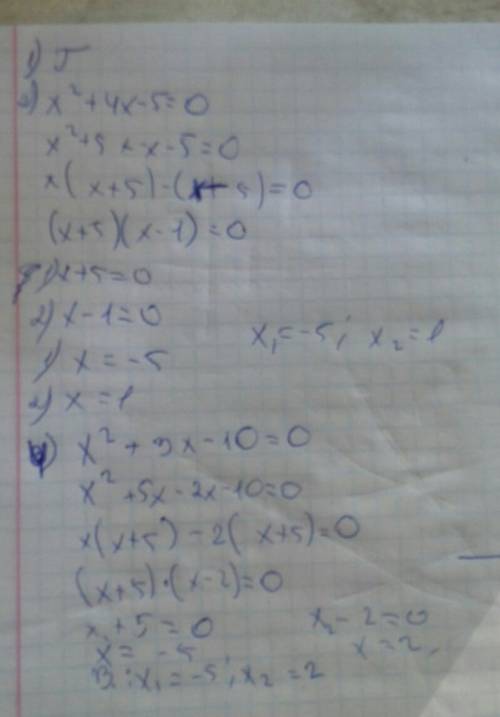 1) Г
2) x² + 4x - 5 = 0
x² + 5x - x - 5 = 0
x(x+5) - (x+5) = 0
(x+5)(x-1) = 0
1) x+5=0
2) x-1=0
1) x = -5
x₁ = -5; x₂ = 1
2) x = 1
x² + 3x - 10 = 0
x² + 5x - 2x - 10 = 0
x(x+5) - 2(x+5) = 0
(x+5)·(x-2) = 0
x₁ + 5 = 0 x₂ - 2 = 0
x = -5 x = 2
В: x₁ = -5; x₂ = 2